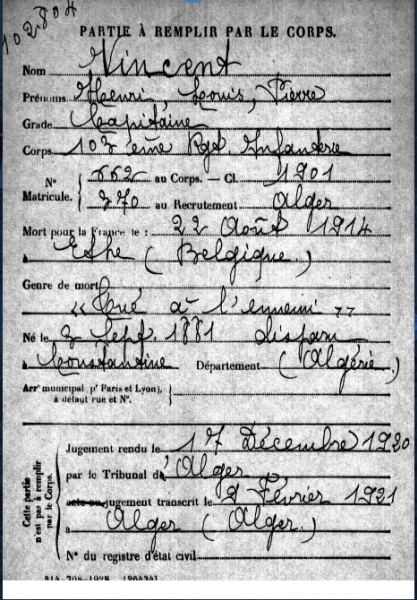 102.804
PARTIE À REMPLIR PAR LE CORPS.
Nom Vincent
Prénoms Henri, Louis, Pierre
Grade Capitaine
Corps 103 ème Rgt Infanterie
N° Matricule. { 662 au Corps. — Cl. 1901
370 au Recrutement Alger
Mort pour la France le : 22 Août 1914
à Ethe (Belgique.)
Genre de mort
"Tué à l'ennemi"
Né le 2 Sept. 1881 disparu
à Constantine Département (Algérie)
Arr<sup>t</sup> municipal (p<sup>r</sup> Paris et Lyon), à défaut rue et N°.
Cette partie n'est pas à remplir par le Corps.
Jugement rendu le 17 Décembre 1920
par le Tribunal d'Alger
acte ou jugement transcrit le 9 Février 1921
à Alger (Alger.)
N° du registre d'état civil